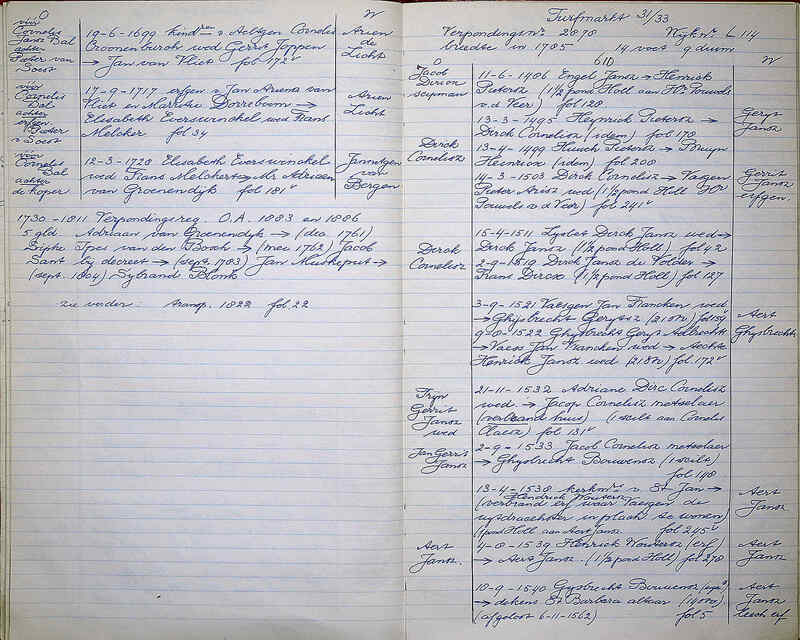 O W
vóór
Cornelis
Jansz Bal
achter
Pieter van
Soest
19-6-1699 kindren v Aeltgen Cornelis
Croonenburch wed Gerrit Joppen
→ Jan van Vliet fol 172v
Arien
de
Licht
vóór
Cornelis
Bal
achter
erfgen
Pieter
v Soest
17-9-1717 erfgen v Jan Ariensz van
Vliet en Marritie Dorreboom →
Elisabeth Everswinckel wed Frans
Melcker fol 34
Arien
Licht
vóór
Cornelis
Bal
achter
de koper
12-3-1728 Elisabeth Everswinckel
wed Frans Melchert → Mr Adriaen
van Groenendijk fol 181v
Jannitgen
van
Bergen
1730-1811 Verpondingsreg. O.A. 1883 en 1886
5 gld. Adriaan van Groenendijk → (dec 1761)
van den Bosch → (mei 1762) Jacob
Sant bij decreet → (sept. 1783) Jan →
(sept. 1804) Sybrand Blonk
zie verder: transp. 1822 fol. 22
Turfmarkt 31/33
Verpondingsnr. 2878 Wijknr L 114
breedte in 1785 14 voet 9 duim
O 610 W
Jacob
Dircx
scipman
11-6-1486 Engel Jansz → Henrick
Pietersz (1½ pond Holl aan Hr Pouwels
v.d Veer) fol 128
13-3-1495 Heynrick Pietersz →
Dirck Cornelisz (idem) fol 170
Geryt
Jansz
Dirck
Cornelisz
13-4-1499 Huych Pietersz → Bruyn
Heinricx (idem) fol 200
14-3-1503 Dirck Cornelisz → Vaegen
Pieter Ariesz wed (1½ pond Holl Hr
Pouwels v.d Veer) fol 241v
Gerrit
Jansz
erfgen.
15-4-1511 Lysbet Dirck Jansz wed →
Dirck Jansz (1½ pond Holl) fol 42
Dirck
Cornelisz
2-9-1519 Dirck Jansz de Volder →
Frans Dircxz (1½ pond Holl) fol 127
3-9-1521 Vaesgen Jan Francken wed
→ Ghysbrecht Gerytsz (21 st) fol 159
Aert
Ghysbrechts
9-8-1522 Ghysbrecht Gerys Aelbrechts
→ Vaes Jan Francken wed → Aechte
Henrick Jansz wed (21 st) fol 172v
Tryn
Gerrit
Jansz
wed
21-11-1532 Adriane Dirc Cornelisz
wed → Jacop Cornelisz metselaer
(verbrand huis) (1 scilt aan Cornelis
Claesz) fol 131v
Jan Gerrits
Jansz
2-9-1533 Jacob Cornelisz metselaer
→ Ghysbrecht Bouwensz (1 scilt)
fol 148
13-4-1538 kerkmrs v St Jan →
Hendrick Woutersz
(verbrand erf waar Vaesgen de
uytdraechster in plach te wonen)
(1 pond Holl aan Aert Jansz fol 245v
Aert
Jansz
Aert
Jansz.
4-8-1539 Henrick Woutersz (erf)
→ Aert Jansz (1½ pond Holl) fol 278
Aert
Jansz
10-9-1540 Gysbrecht Bouwensz
→ dekens St Barbara altaar
(afgelost 6-11-1562) fol 5
Aert
Jansz
leech erf